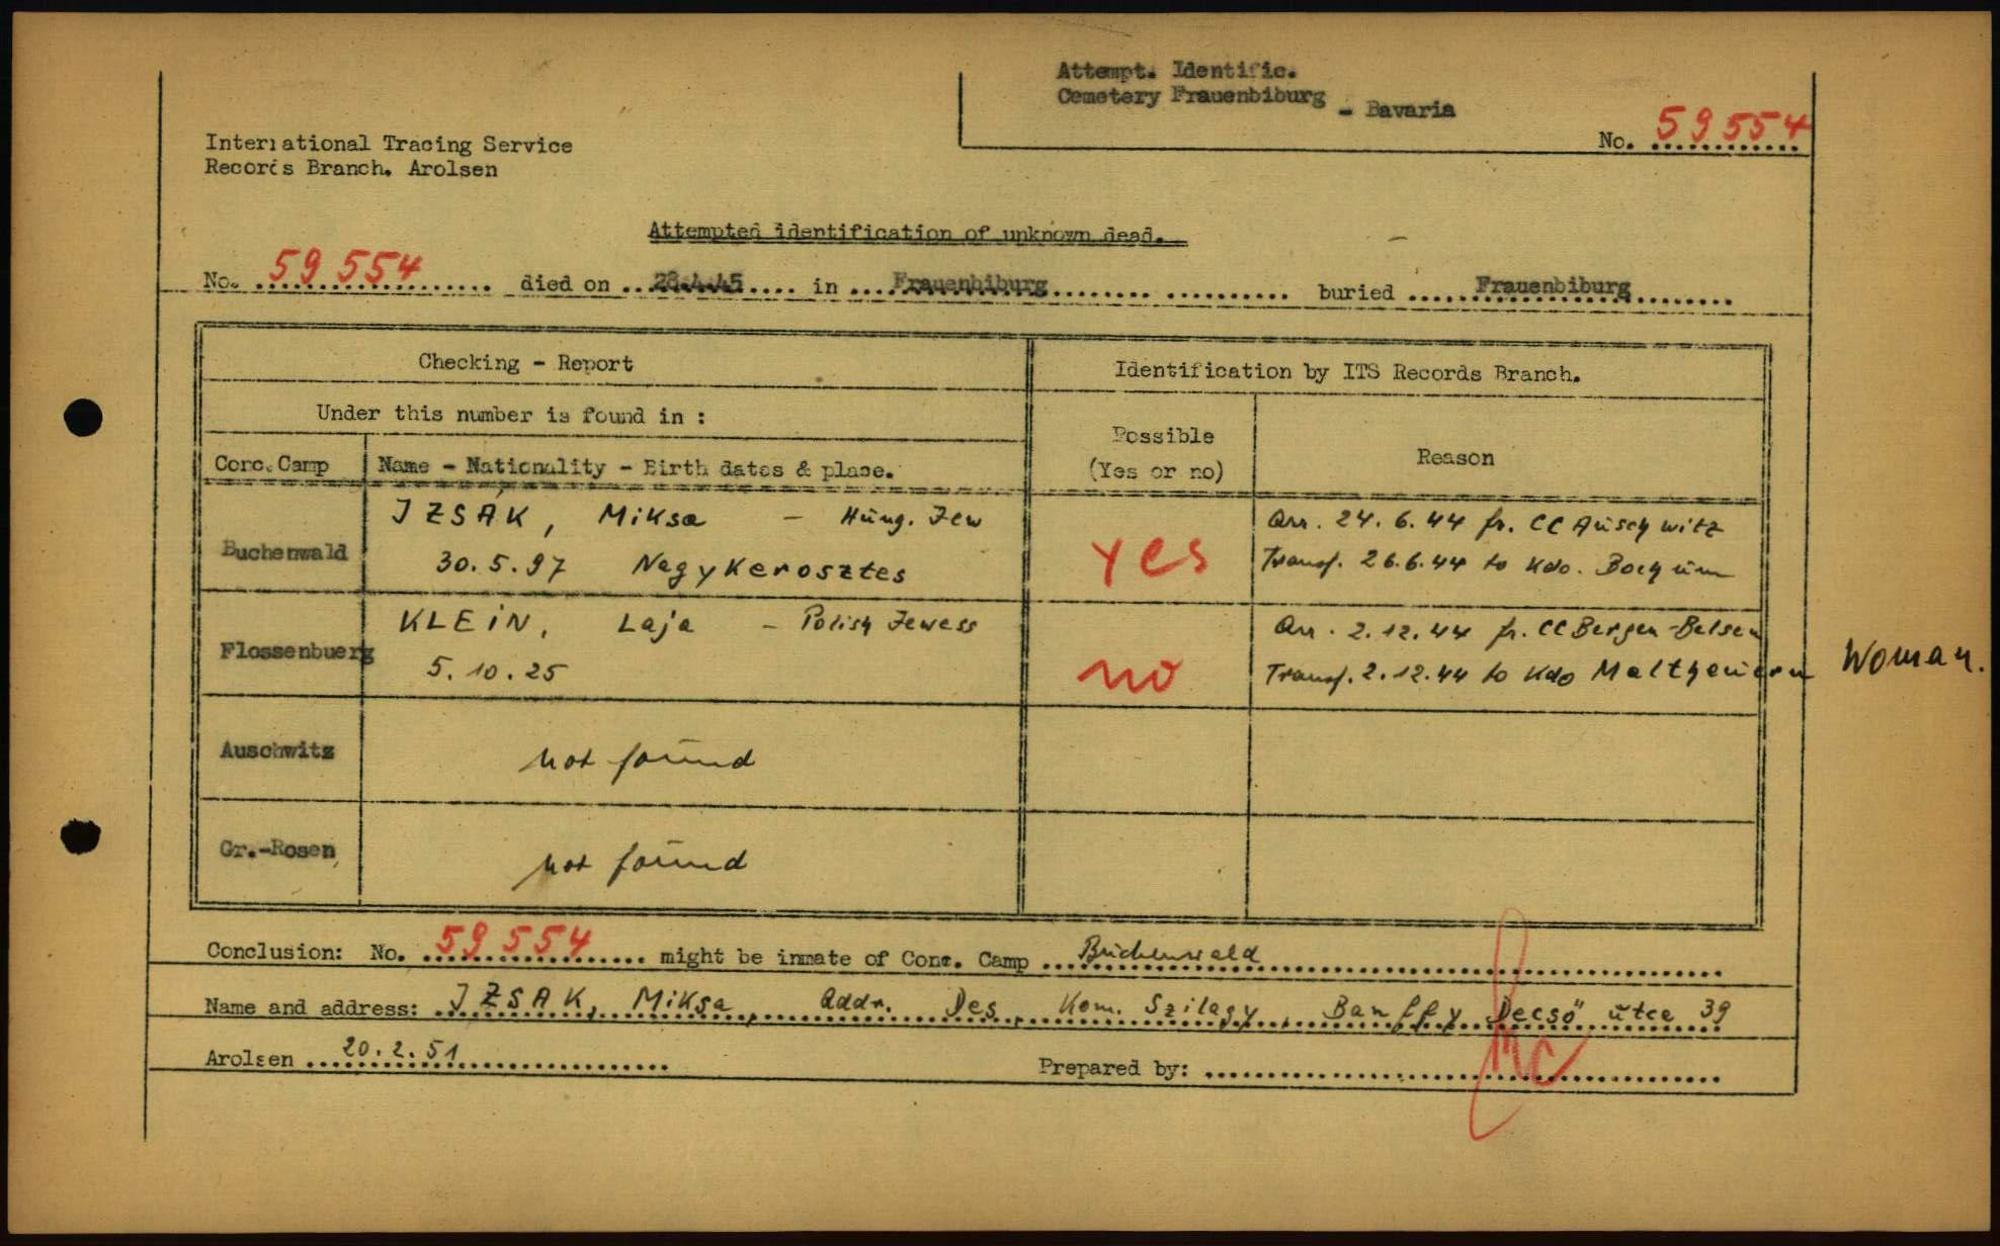 Attempt. Identific.
Cemetery Frauenbiburg - Bavaria
No. 59554
International Tracing Service
Records Branch. Arolsen
Attempted identification of unknown dead.
No. 59554 died on 28.4.45 in Frauenbiburg buried Frauenbiburg
Checking - Report
Identification by ITS Records Branch.
Under this number is found in :
Possible
(Yes or no)
Reason
Conc. Camp
Name - Nationality - Birth dates & place.
Buchenwald
JZSAK, Miksa - Hung. Jew
30.5.97 Nagykerosztes
yes
Arr. 24.6.44 fr. CC Auschwitz
Transf. 26.6.44 to Kdo. Bochum
Flossenbuerg
KLEIN, Laja - Polish Jewess
5.10.25
no
Arr. 2.12.44 fr. CC Bergen-Belsen
Transf. 2.12.44 to Kdo Meltheuern
Woman.
Auschwitz
not found
Gr.-Rosen
not found
Conclusion: No. 59554 might be inmate of Conc. Camp Buchenwald
Name and address: JZSAK, Miksa, Addr. Des, Kom. Szilagy, Banffy Decsö utca 39
Arolsen 20.2.51
Prepared by: